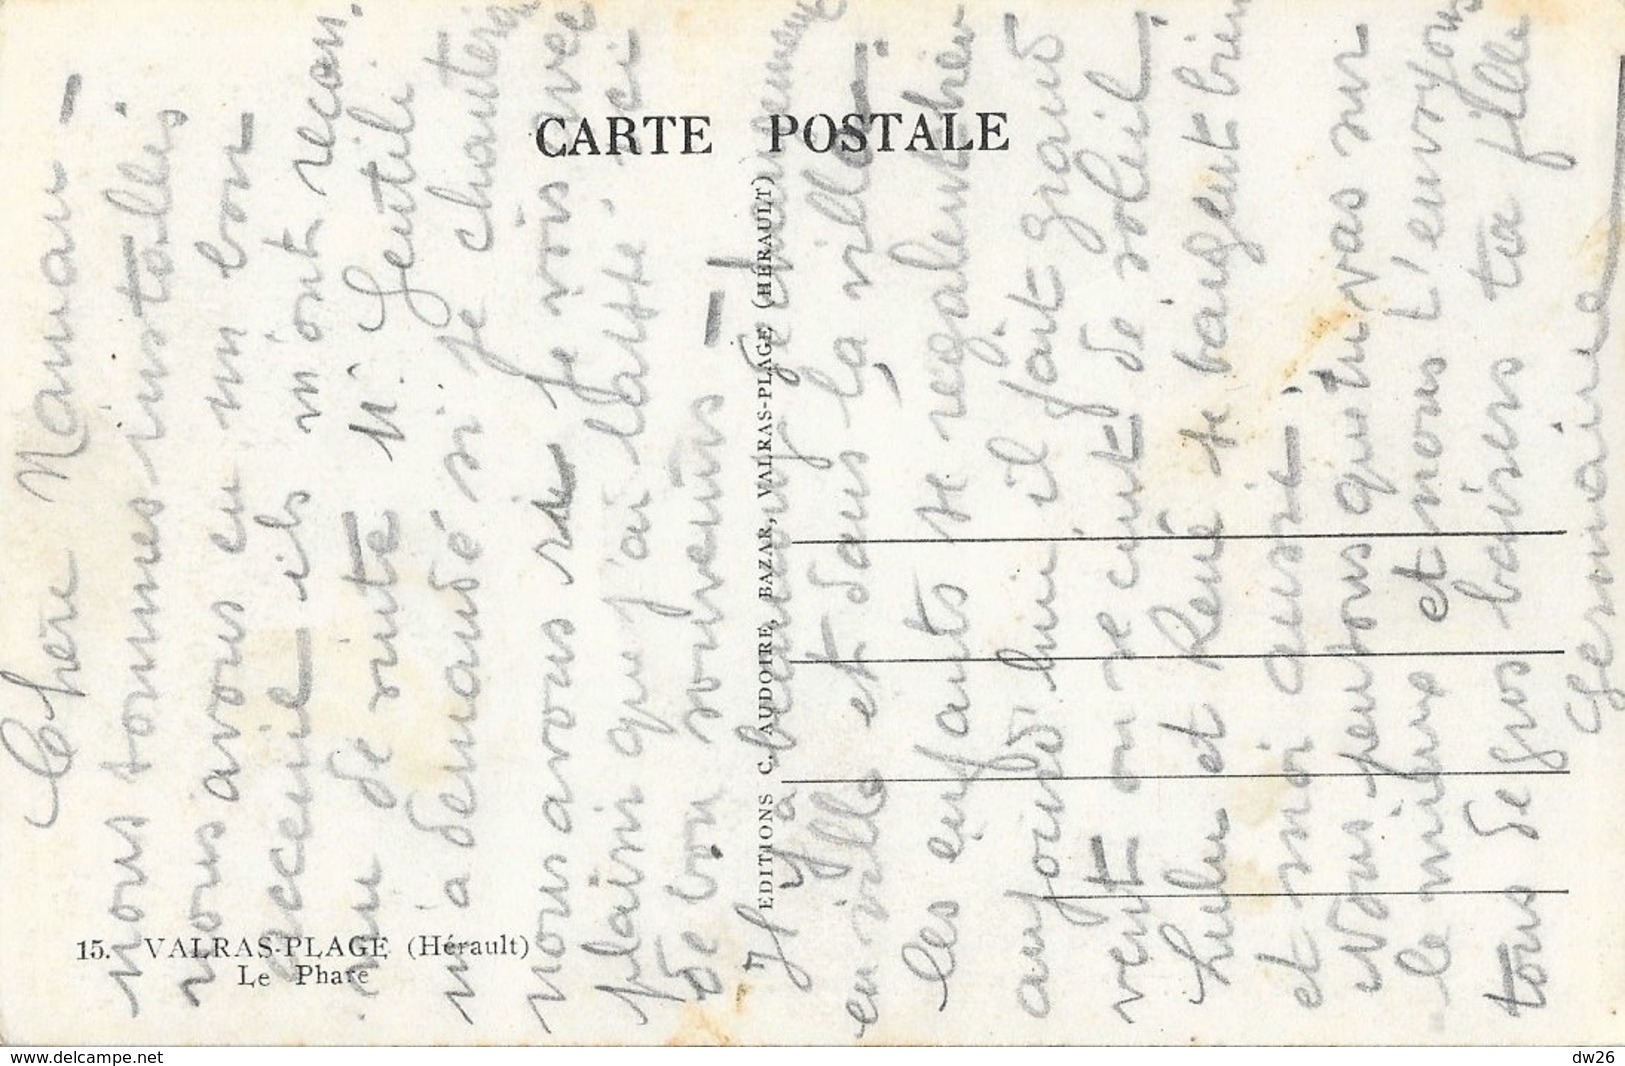 CARTE POSTALE
EDITIONS C. AUDOIRE, BAZAR, VALRAS-PLAGE (HÉRAULT)
15. VALRAS-PLAGE (Hérault)
Le Phare
Chère Maman -
nous sommes installés
nous avons eu un bon
accueil - ils m'ont recon.
nu de suite M. Gentile
m'a demandé si je chanterai
nous avons ri je vois avec
plaisir que j'ai laissé ici
de bon souvenirs -
Il y a beaucoup de changement
en ville et dans la villa.
les enfants se régalent hier
aujourd'hui, il fait grand
vent on se cuit de soleil.
Lulu et René se baignent bien
et moi aussi.
Nous pensons que tu vas sur
le mieux et nous t'envoyons
tous de gros baisers ta fille
Germaine
www.delcampe.net
dw26